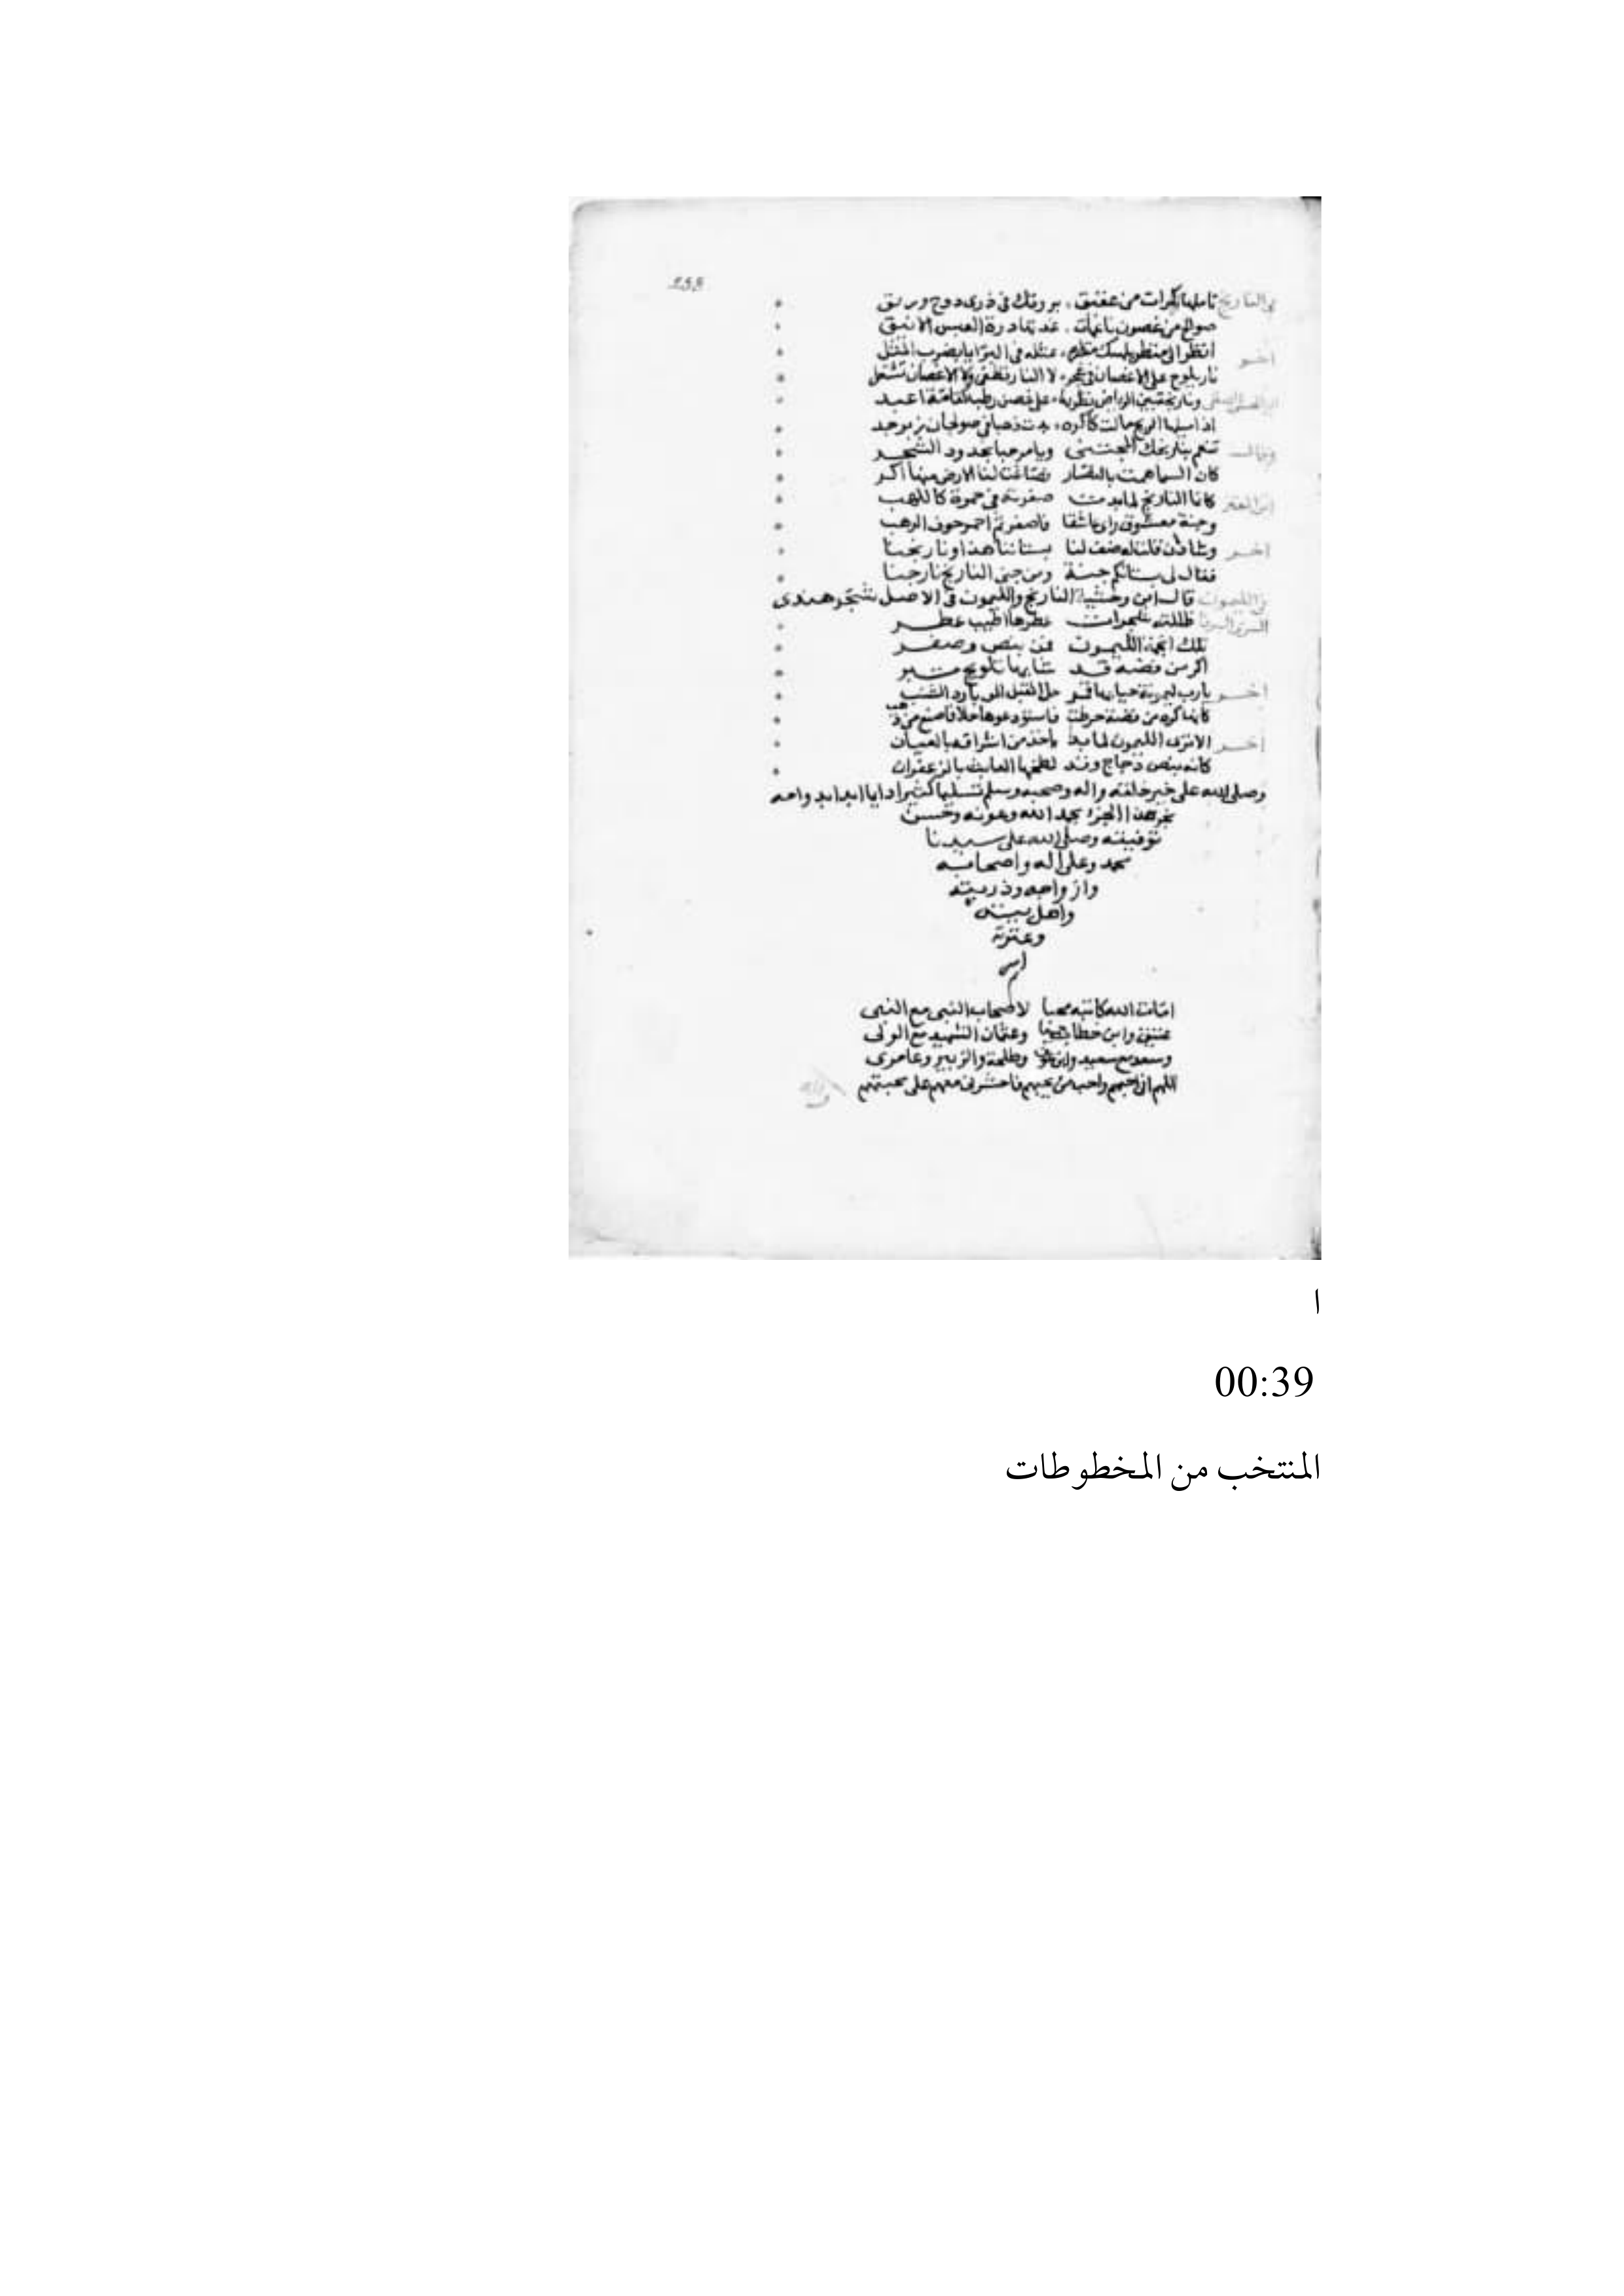 255
في النارنج تأملها كرات من عقيق بروقك في ذرى دوح وريق
صوالج من غصون ناعمات
اخر انظر الى منظر يلهيك منظره بمثله في البرايا يضرب المثل
نار تلوح على الاغصان في شجر لا النار تطفى ولا الاغصان تشتعل
ونارنجة بين الرياض نظرتها على غصن رطب كقامة اغيد
اذا ميلها الريح مالت كاكرة بدت ذهبا في صولجان زبرجد
وقال تنعم بنارنجك المجتنى ويا مرحبا بخدود الشجر
كان السما همت بالنضار فصاغت لنا الارض منها اكر
ابن المعتز كانما النارنج لما بدت صفرته في حمرة كاللهب
وجنة معشوق راى عاشقا فاصفر ثم احمر خوف الرهب
اخر وشادن قلنا له صف لنا بستاننا هذا ونارنجنا
فقال لي بستانكم جنة ومن جنى النارنج نارا جنا
في الليمون قال ابن وحشية النارنج والليمون في الاصل شجر هندي
عطرها اطيب عطر
تلك الليمون من بيض وصفر
اكر من فضة قد شابها تلويح تبر
اخر يارب ليمونة حيا بها قمر حلو المقبل المى بارد الشنب
كانها كرة من فضة خرطت فاستودعوها غلافا صيغ من ذهب
اخر الا ترى الليمون لما بدا ياخذ من اشراقه بالعيان
كانه بيض دجاج وقد لطخها العابث بالزعفران
وصلى الله على خير خلقه واله وصحبه وسلم تسليما كثيرا دايما ابدا
نجز هذا الجزء بحمد الله وعونه وحسن
توفيقه وصلى الله على سيدنا
محمد وعلى اله واصحابه
وازواجه وذريته
واهل بيته
وعترته
امين
امات الله كاتبه محبا لاصحاب النبي مع النبي
عتيق وابن خطاب وعثمان الشهيد مع الولي
وسعد مع سعيد وابن عوف وطلحة والزبير وعامري
اللهم اني احبهم واحب من يحبهم فاحشرني معهم على محبتهم
ا
00:39
المنتخب من المخطوطات